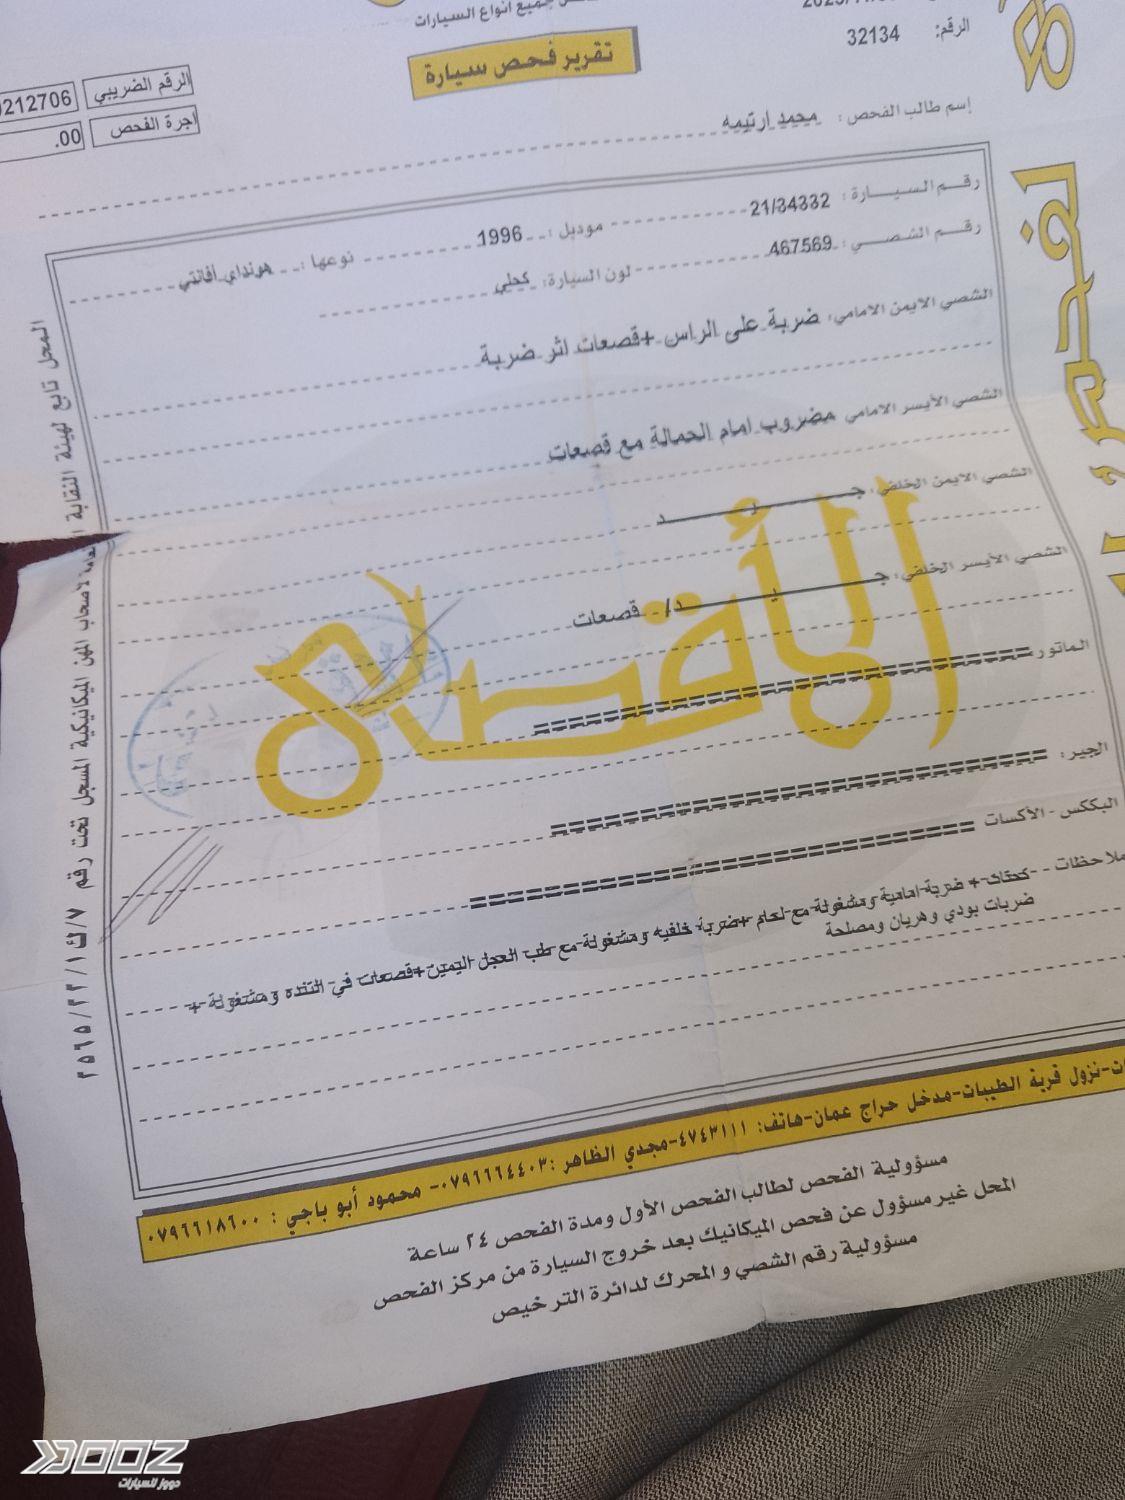 جميع انواع السيارات
الرقم: 32134
تقرير فحص سيارة
الرقم الضريبي 212706
اجرة الفحص .00
إسم طالب الفحص: محمد ارتيمه
رقم السيارة: 21/34332 موديل: 1996 نوعها: هونداي افانتي
رقم الشصي: 467569 لون السيارة: كحلي
الشصي الايمن الامامي: ضربة على الراس +قصعات اثر ضربة
الشصي الأيسر الامامي مضروب امام الحمالة مع قصعات
الشصي الايمن الخلفي: جيد
الشصي الأيسر الخلفي: جيد/ قصعات
الماتور
الجير:
البككس - الأكسات
ملاحظات - كحتات + ضربة امامية ومشغولة مع لحام +ضربة خلفيه ومشغولة مع طب العجل اليمين +قصعات في التنده ومشغولة +
ضربات بودي وهريان ومصلحة
نزول قرية الطيبات-مدخل حراج عمان-هاتف: ٤٧٤٣١١١-مجدي الظاهر: ٠٧٩٦٦٦٤٤٠٣- محمود أبو باجي: ٠٧٩٦٦١٨٦٠٠
مسؤولية الفحص لطالب الفحص الأول ومدة الفحص ٢٤ ساعة
المحل غير مسؤول عن فحص الميكانيك بعد خروج السيارة من مركز الفحص
مسؤولية رقم الشصي و المحرك لدائرة الترخيص
المحل تابع لهيئة النقابة العامة لأصحاب المهن الميكانيكية المسجل تحت رقم ٧/ك١/٣٣/٣٥٦٥
لفحص
الأقصى
DOOZ
دووز للسيارات